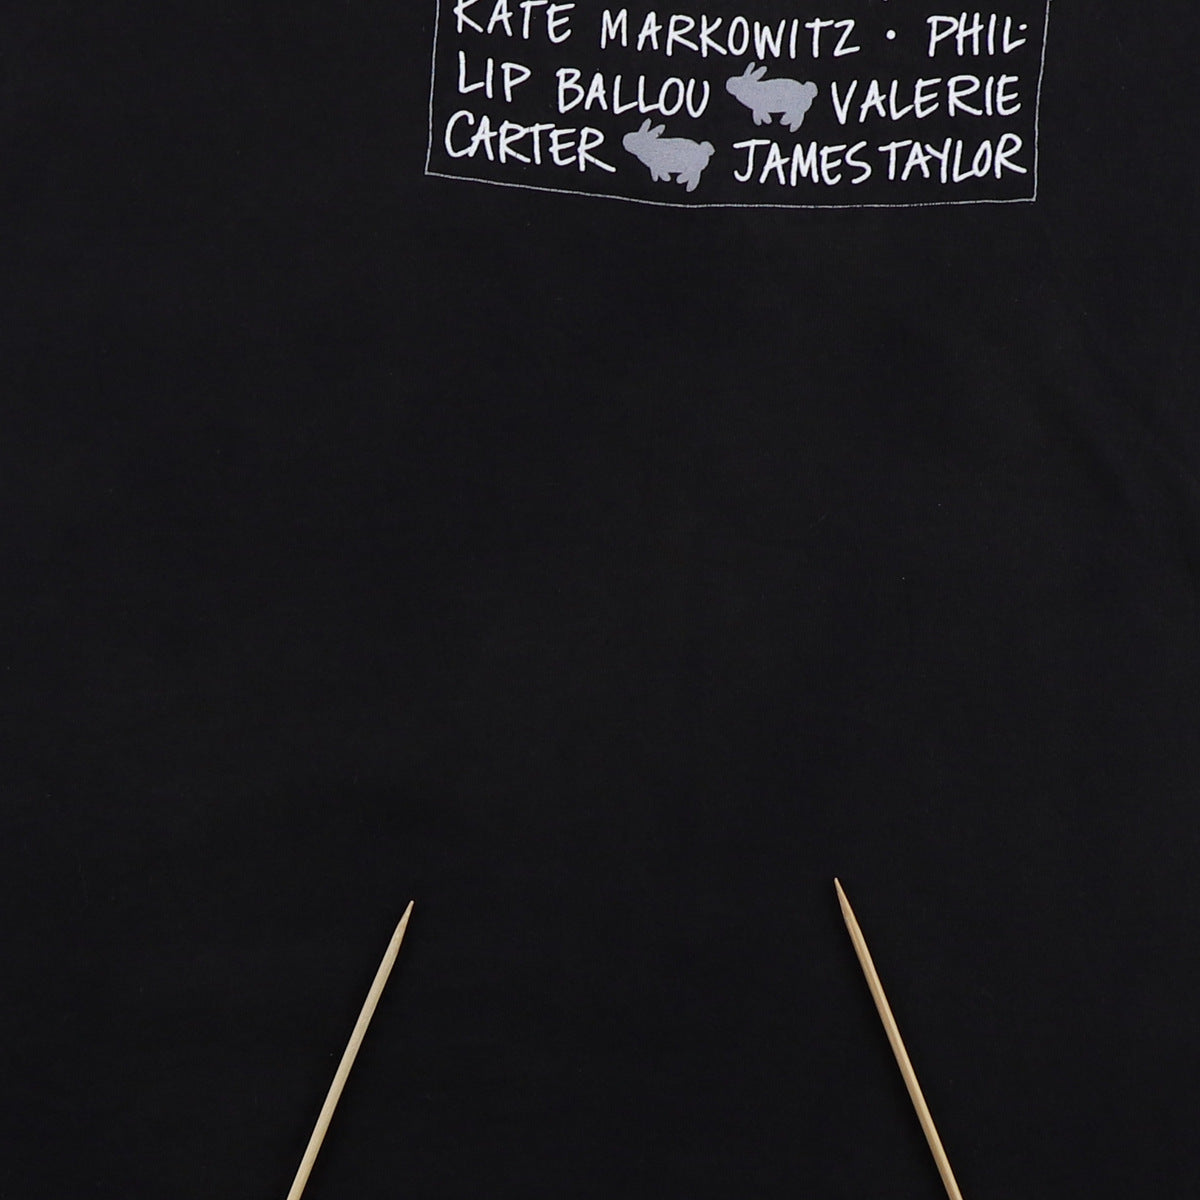 KATE MARKOWITZ • PHIL-
LIP BALLOU VALERIE
CARTER JAMES TAYLOR